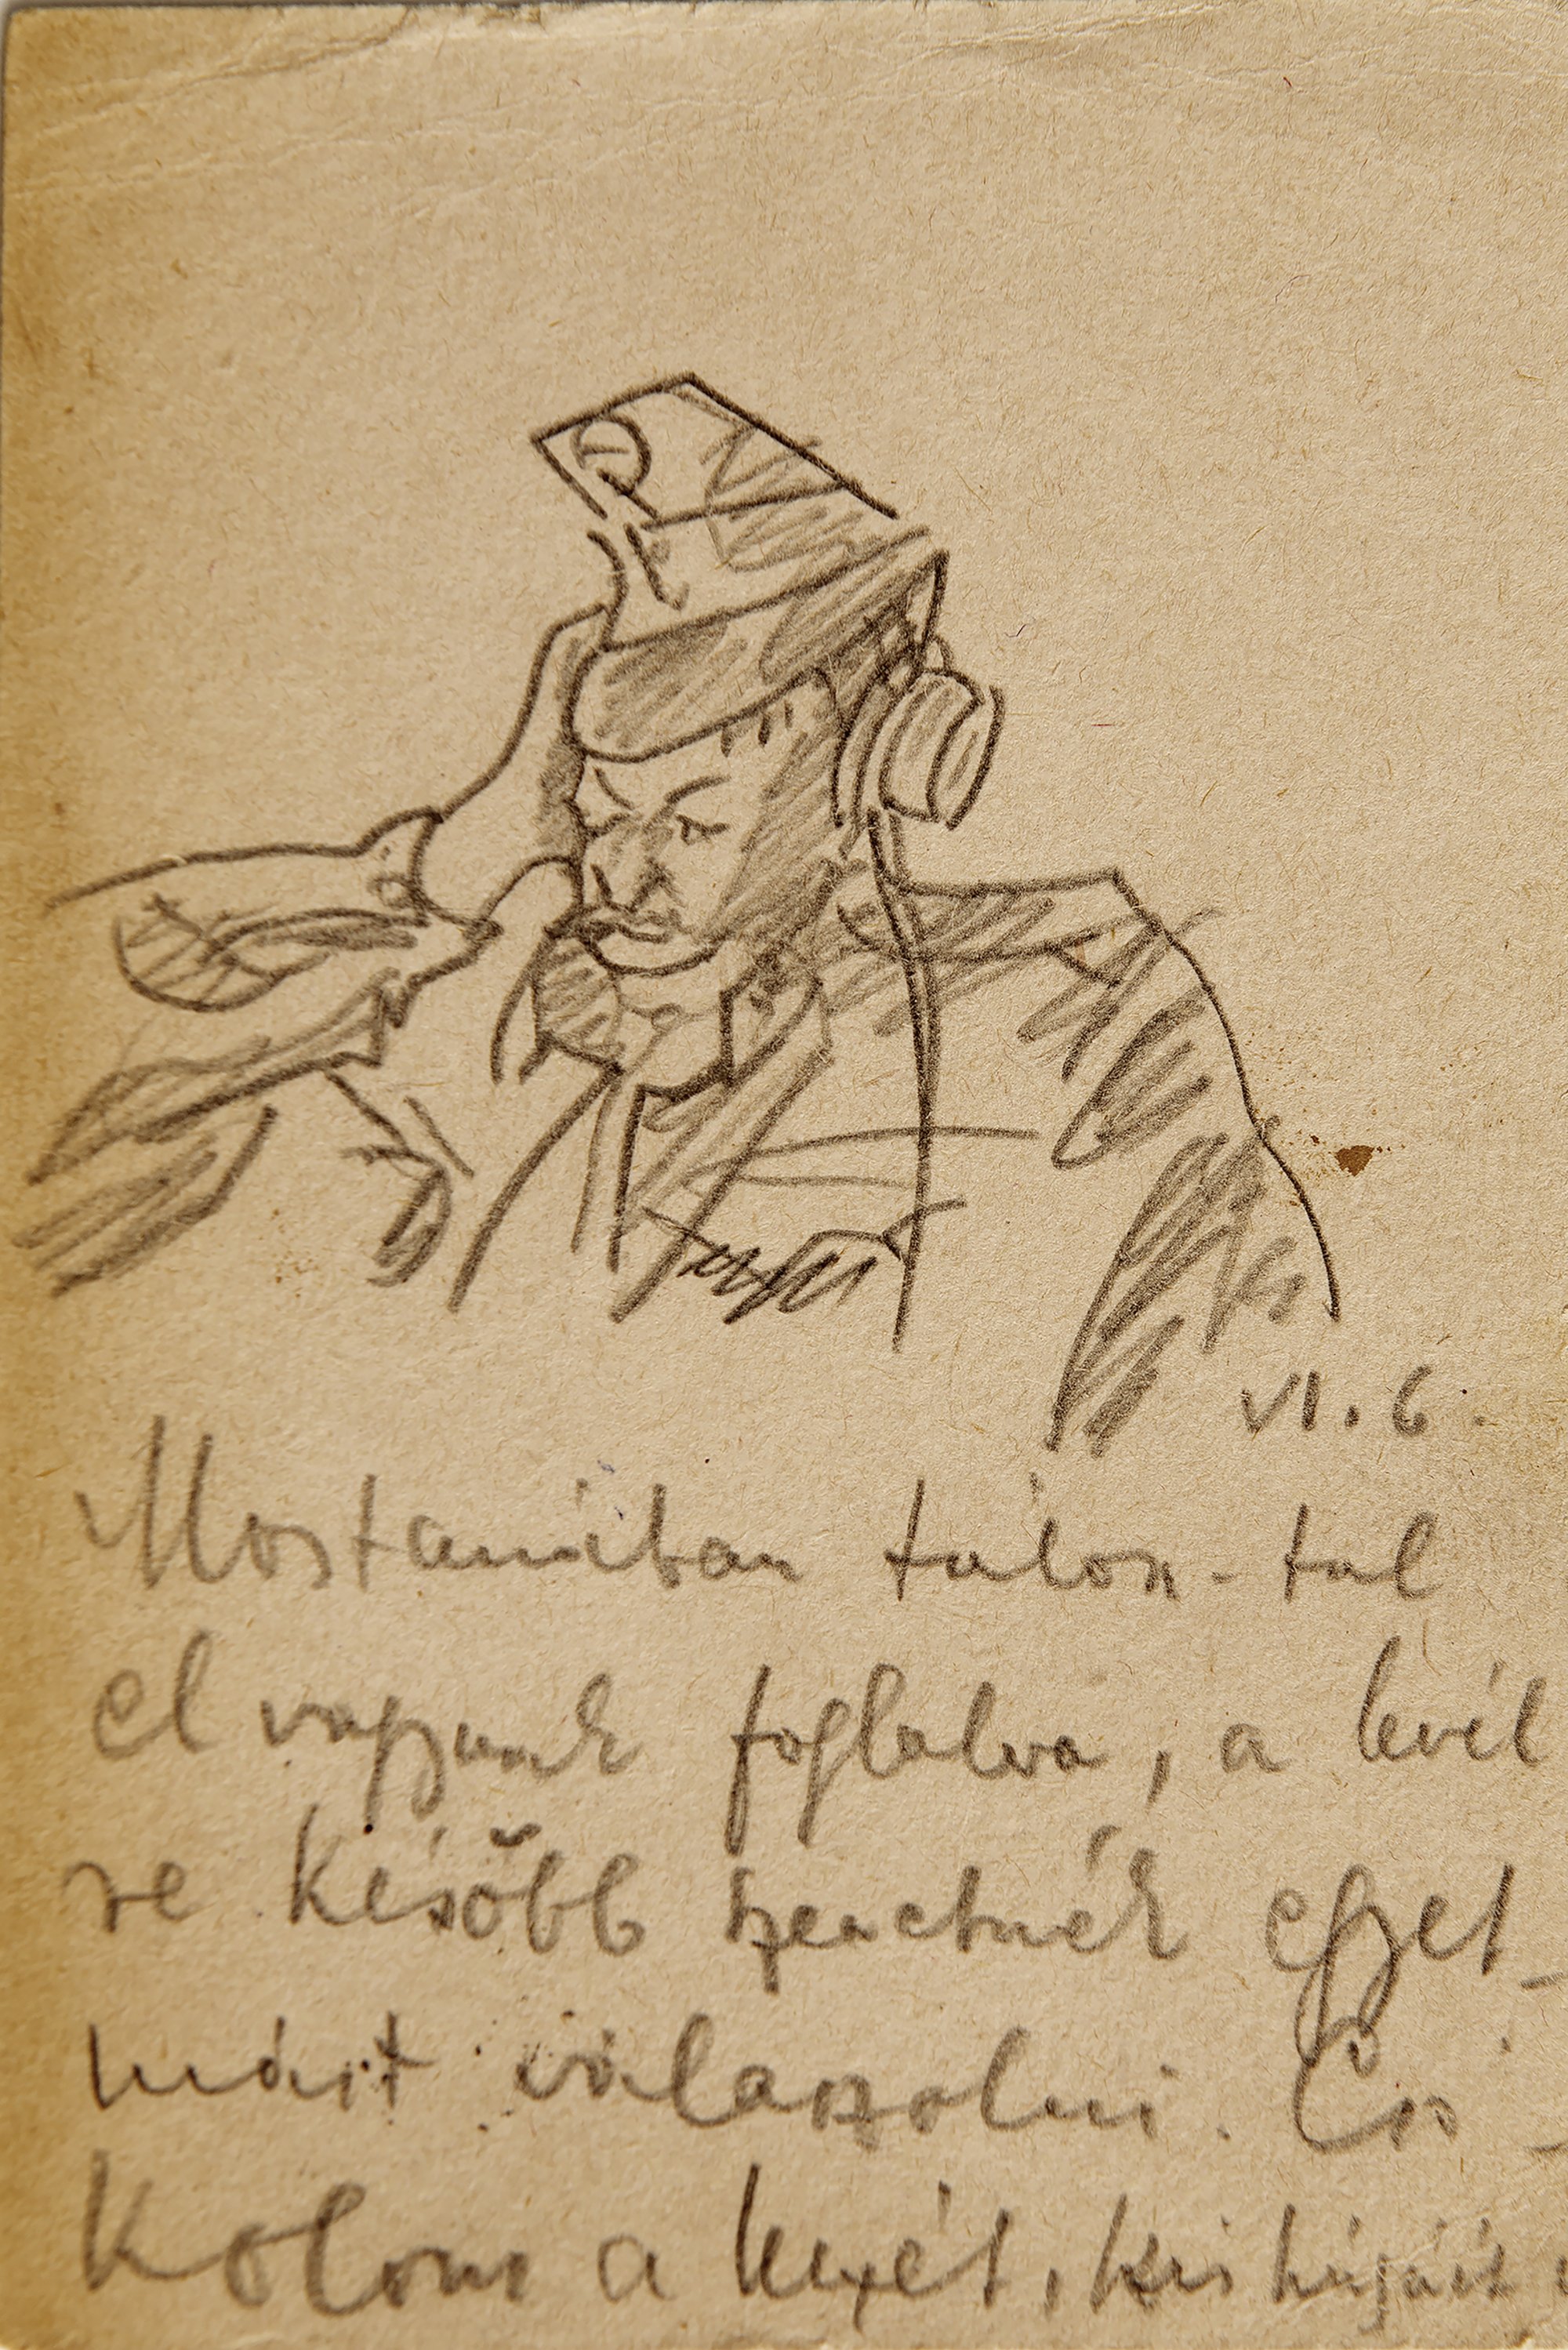 VI. 6.
Mostanában túlon-túl
el vagyunk foglalva, a levél
re később szeretnék egyet-
mást válaszolni. Csó-
kolom a kezét, kis húgát